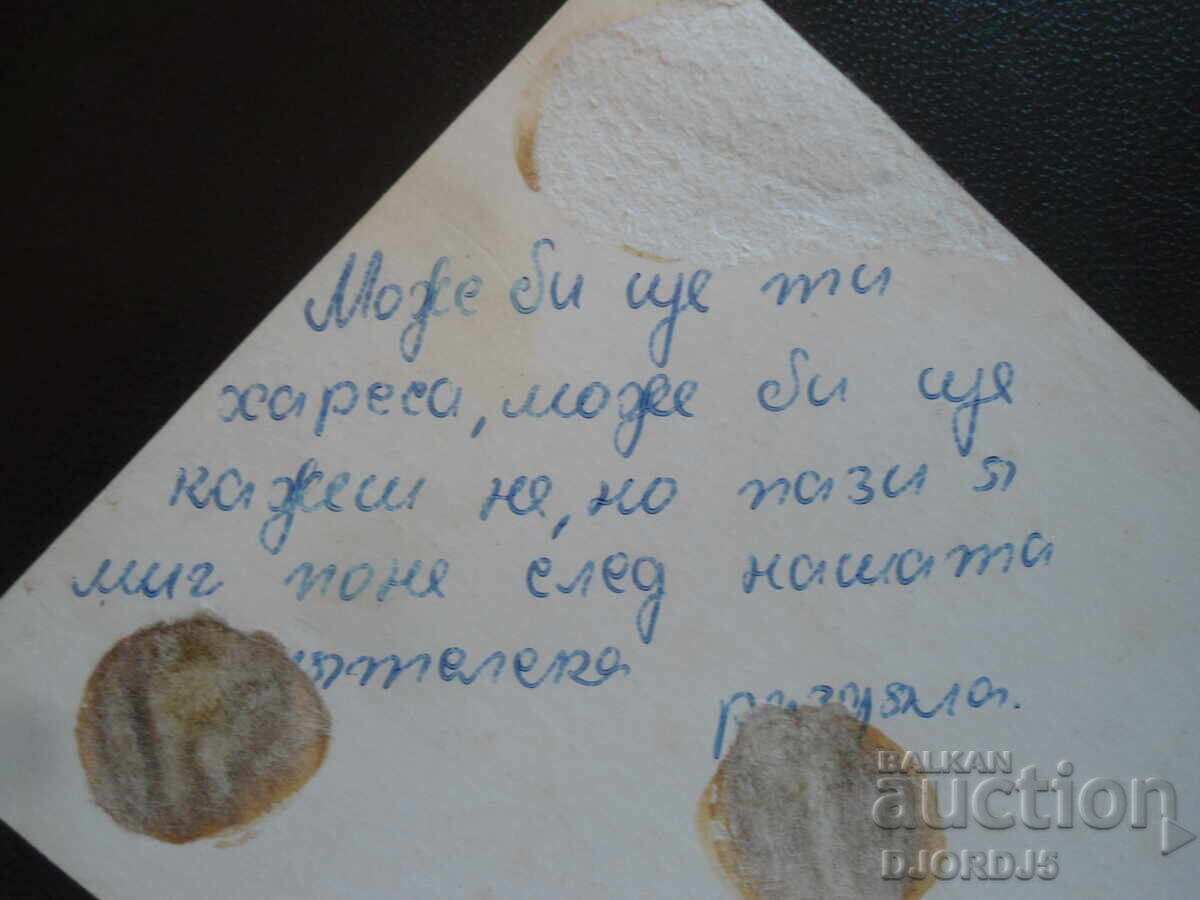 Може би ще ти
хареса, може би ще
кажеш не, но пази я
миг поне след нашата
пътелека
раздяла.
BALKAN
auction
DJORDJ5